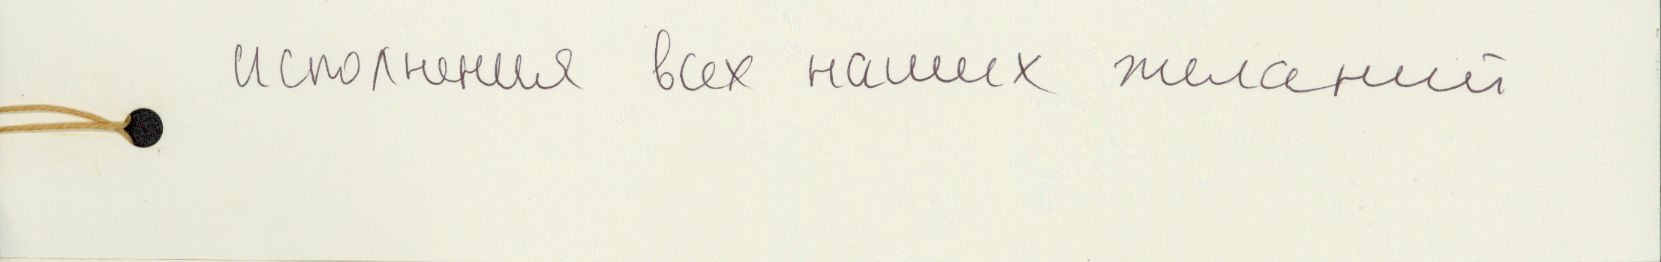 исполнения всех наших желаний